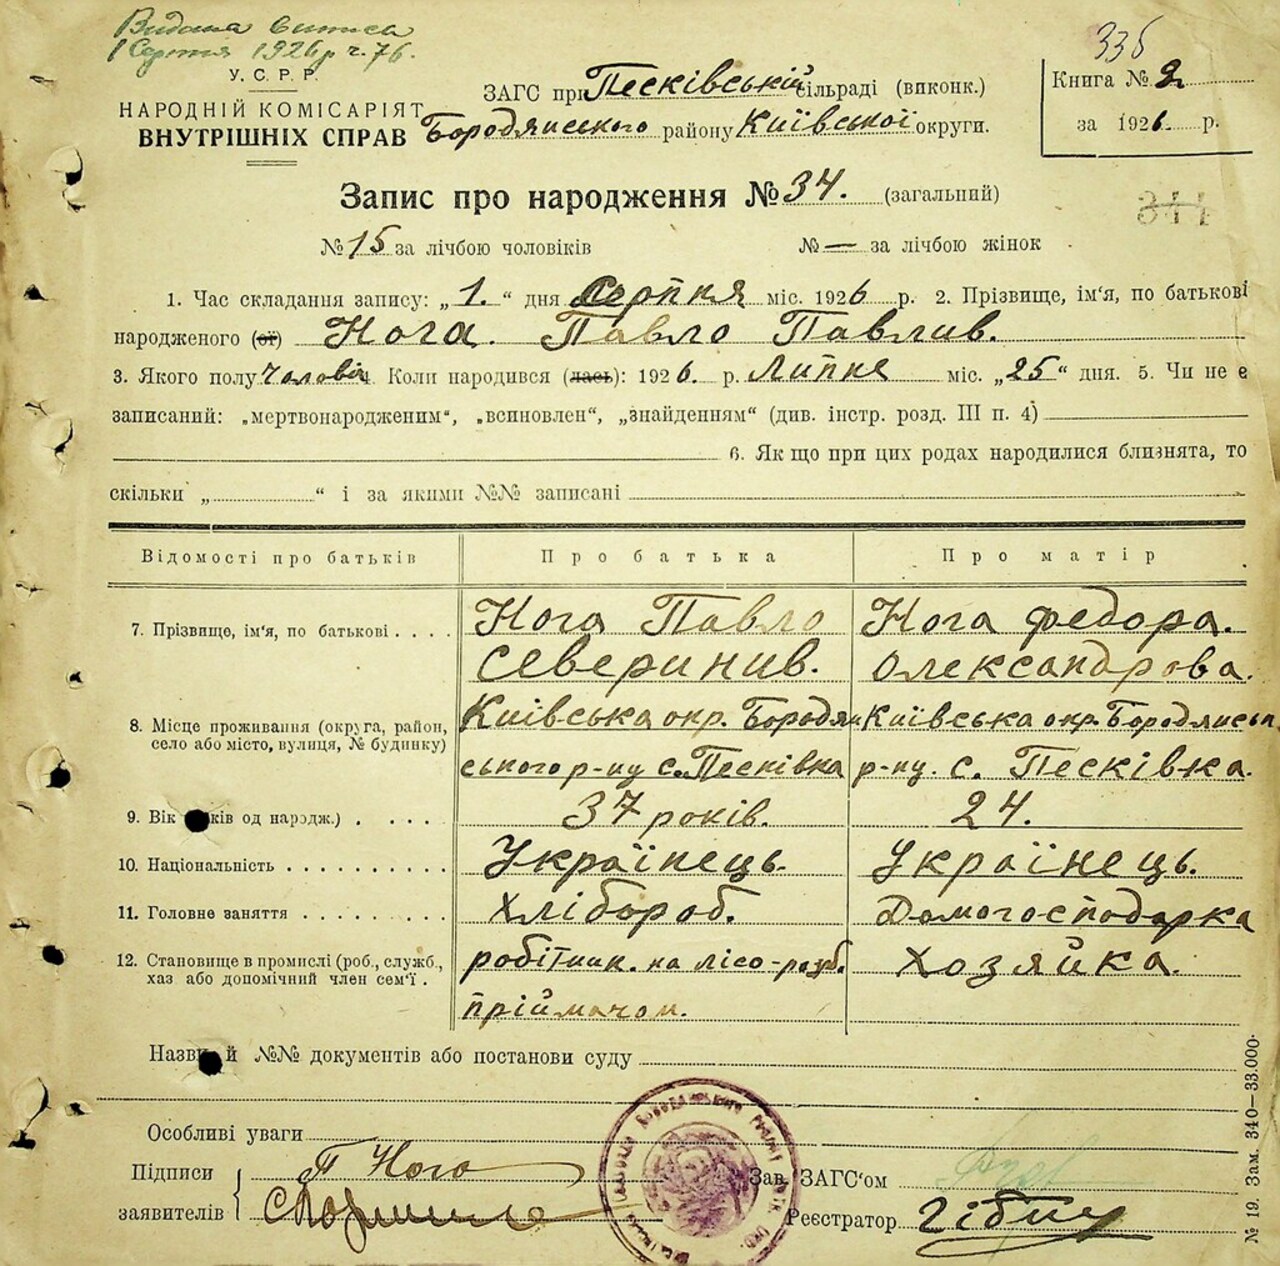 Видана витиса
1 Серпня 1926 р. ч. 76.
У. С. Р. Р.
НАРОДНІЙ КОМІСАРІЯТ
ВНУТРІШНІХ СПРАВ
336
ЗАГС при Песківській сільраді (виконк.)
Бородянського району Київської округи.
Книга № 2
за 1926 р.
Запис про народження № 34. (загальний)
344
№ 15 за лічбою чоловіків № — за лічбою жінок
1. Час складання запису: „1.“ дня Серпня міс. 1926 р. 2. Прізвище, ім'я, по батькові
народженого (ої) Нога. Павло Павлив.
3. Якого полу чоловіч 4. Коли народився (лась): 1926. р. Липне міс. „25“ дня. 5. Чи не є
записаний: „мертвонародженим“, „всиновлен“, „знайденням“ (див. інстр. розд. III п. 4)
6. Як що при цих родах народилися близнята, то
скільки „ “ і за якими №№ записані
Відомості про батьків Про батька Про матір
7. Прізвище, ім'я, по батькові . . . . Нога Павло Нога Федора.
Северинив. Олександрова.
8. Місце проживання (округа, район, Київська окр. Бородян Київська окр. Бородянськ
село або місто, вулиця, № будинку) ського р-ну с. Песківка р-ну. с. Песківка.
9. Вік ків од народж.) . . . . . 37 років. 24.
10. Національність . . . . . . . . . . Українець. Українець.
11. Головне заняття . . . . . . . . . Хлібороб. Домогосподарка
12. Становище в промислі (роб., служб., робітник. на лісо-розр. Хозяйка.
хаз або допомічний член сем'ї . приймачом.
Назви й №№ документів або постанови суду
Особливі уваги
Підписи П Ного
заявителів
Зав. ЗАГС'ом
Реєстратор
№ 19. Зам. 340—33.000.